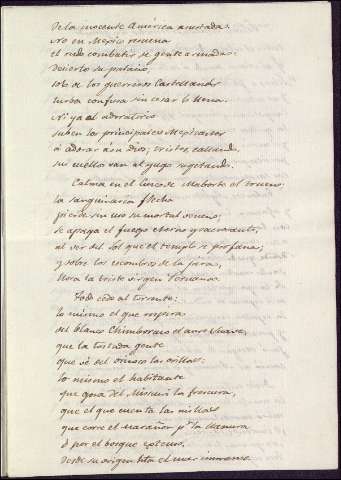 De la inocente América asustada.
No en Mexico resuena
el rudo combatir de gente armada:
desierto su palacio,
solo de los guerreros Castellanos
turba confusa sin cesar lo llena.
Ni ya al adoratorio
suben los principales Mexicanos
á adorar á su dios; tristes, callando,
sus cuellos van al yugo sugetando.
Calma en el Cuzco de Mavorte el trueno;
la sanguinaria flecha
pierde sin uso su mortal veneno;
se apaga el fuego eterno y sacrosanto,
al ver del Sol que el templo se profana;
y sobre los escombros de la
llora la triste virgen Peruana.
Todo cede al torrente:
lo mismo el que respira
del blanco Chimborazo el aura suave,
que la tostada gente
que vé del orinoco las orillas:
lo mismo el habitante
que goza del Missuri la frescura,
que el que cuenta las millas
que corre el Marañon pr. la llanura
ó por el bosque
desde su origen hta. el mar inmenso.